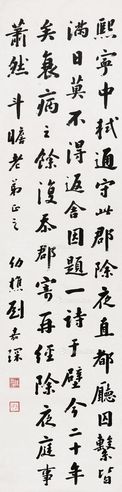 熙寧中軾通守此郡除夜直都廳囚繫皆
滿日莫不得返舍因題一詩于壁今二十年
矣衰病之餘復忝郡寄再經除夜庭事
蕭然 斗瞻老弟正之 幼樵劉嘉琛